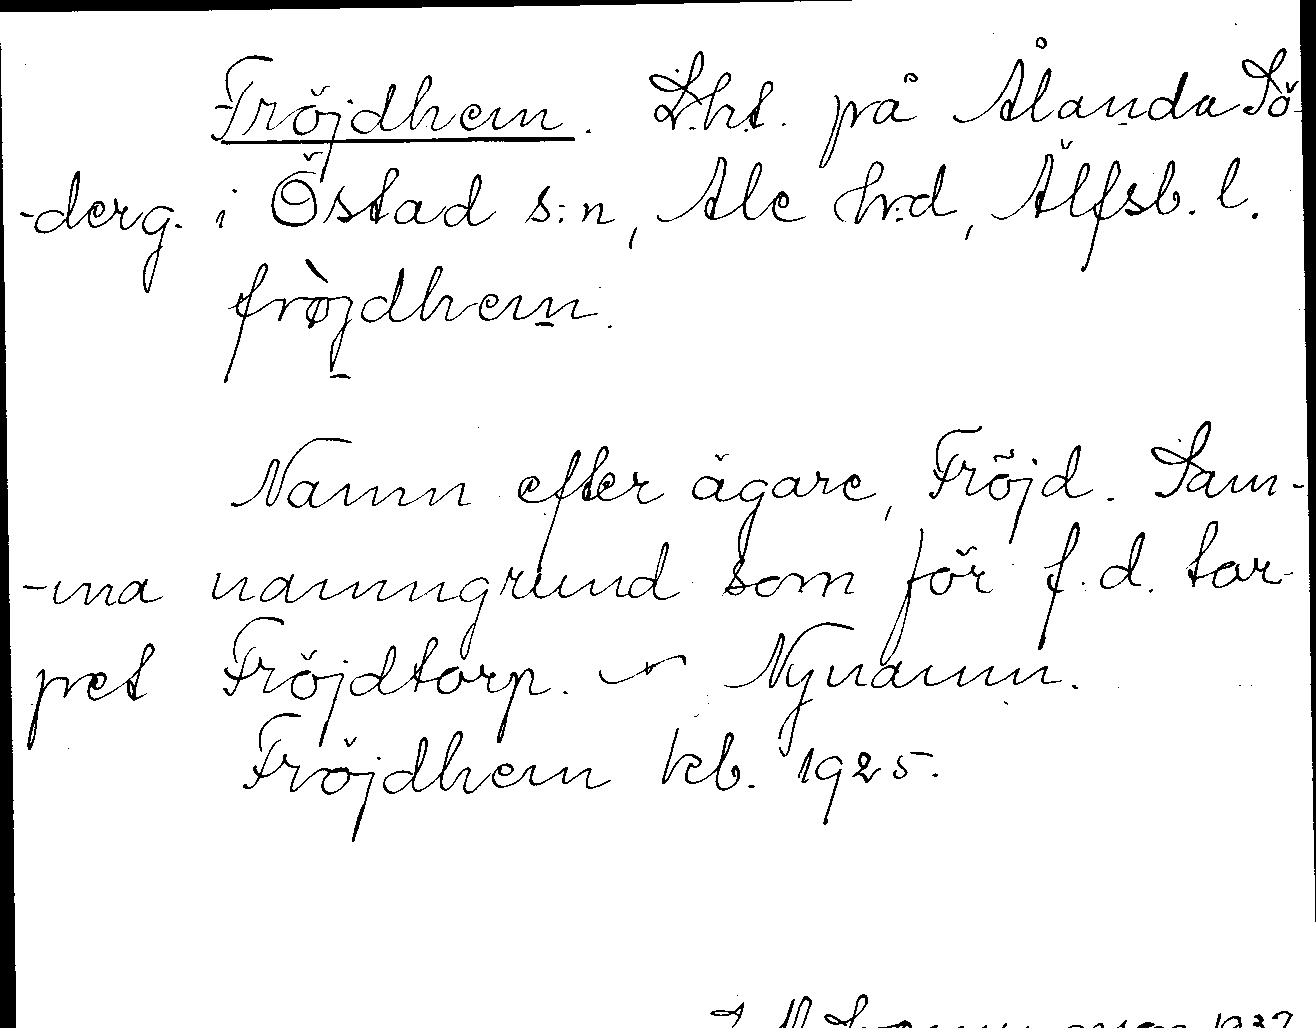 Fröjdhem. Lht. på Ålanda Sö-
-derg. i Östad s:n, Ale h:d, Älfsb. l.
frø̀jdhem.
Namn efter ägare, Fröjd. Sam-
-ma namngrund som för f.d. tor-
pet Fröjdtorp. ~ Nynamn.
Fröjdhem kb. 1925.
1937